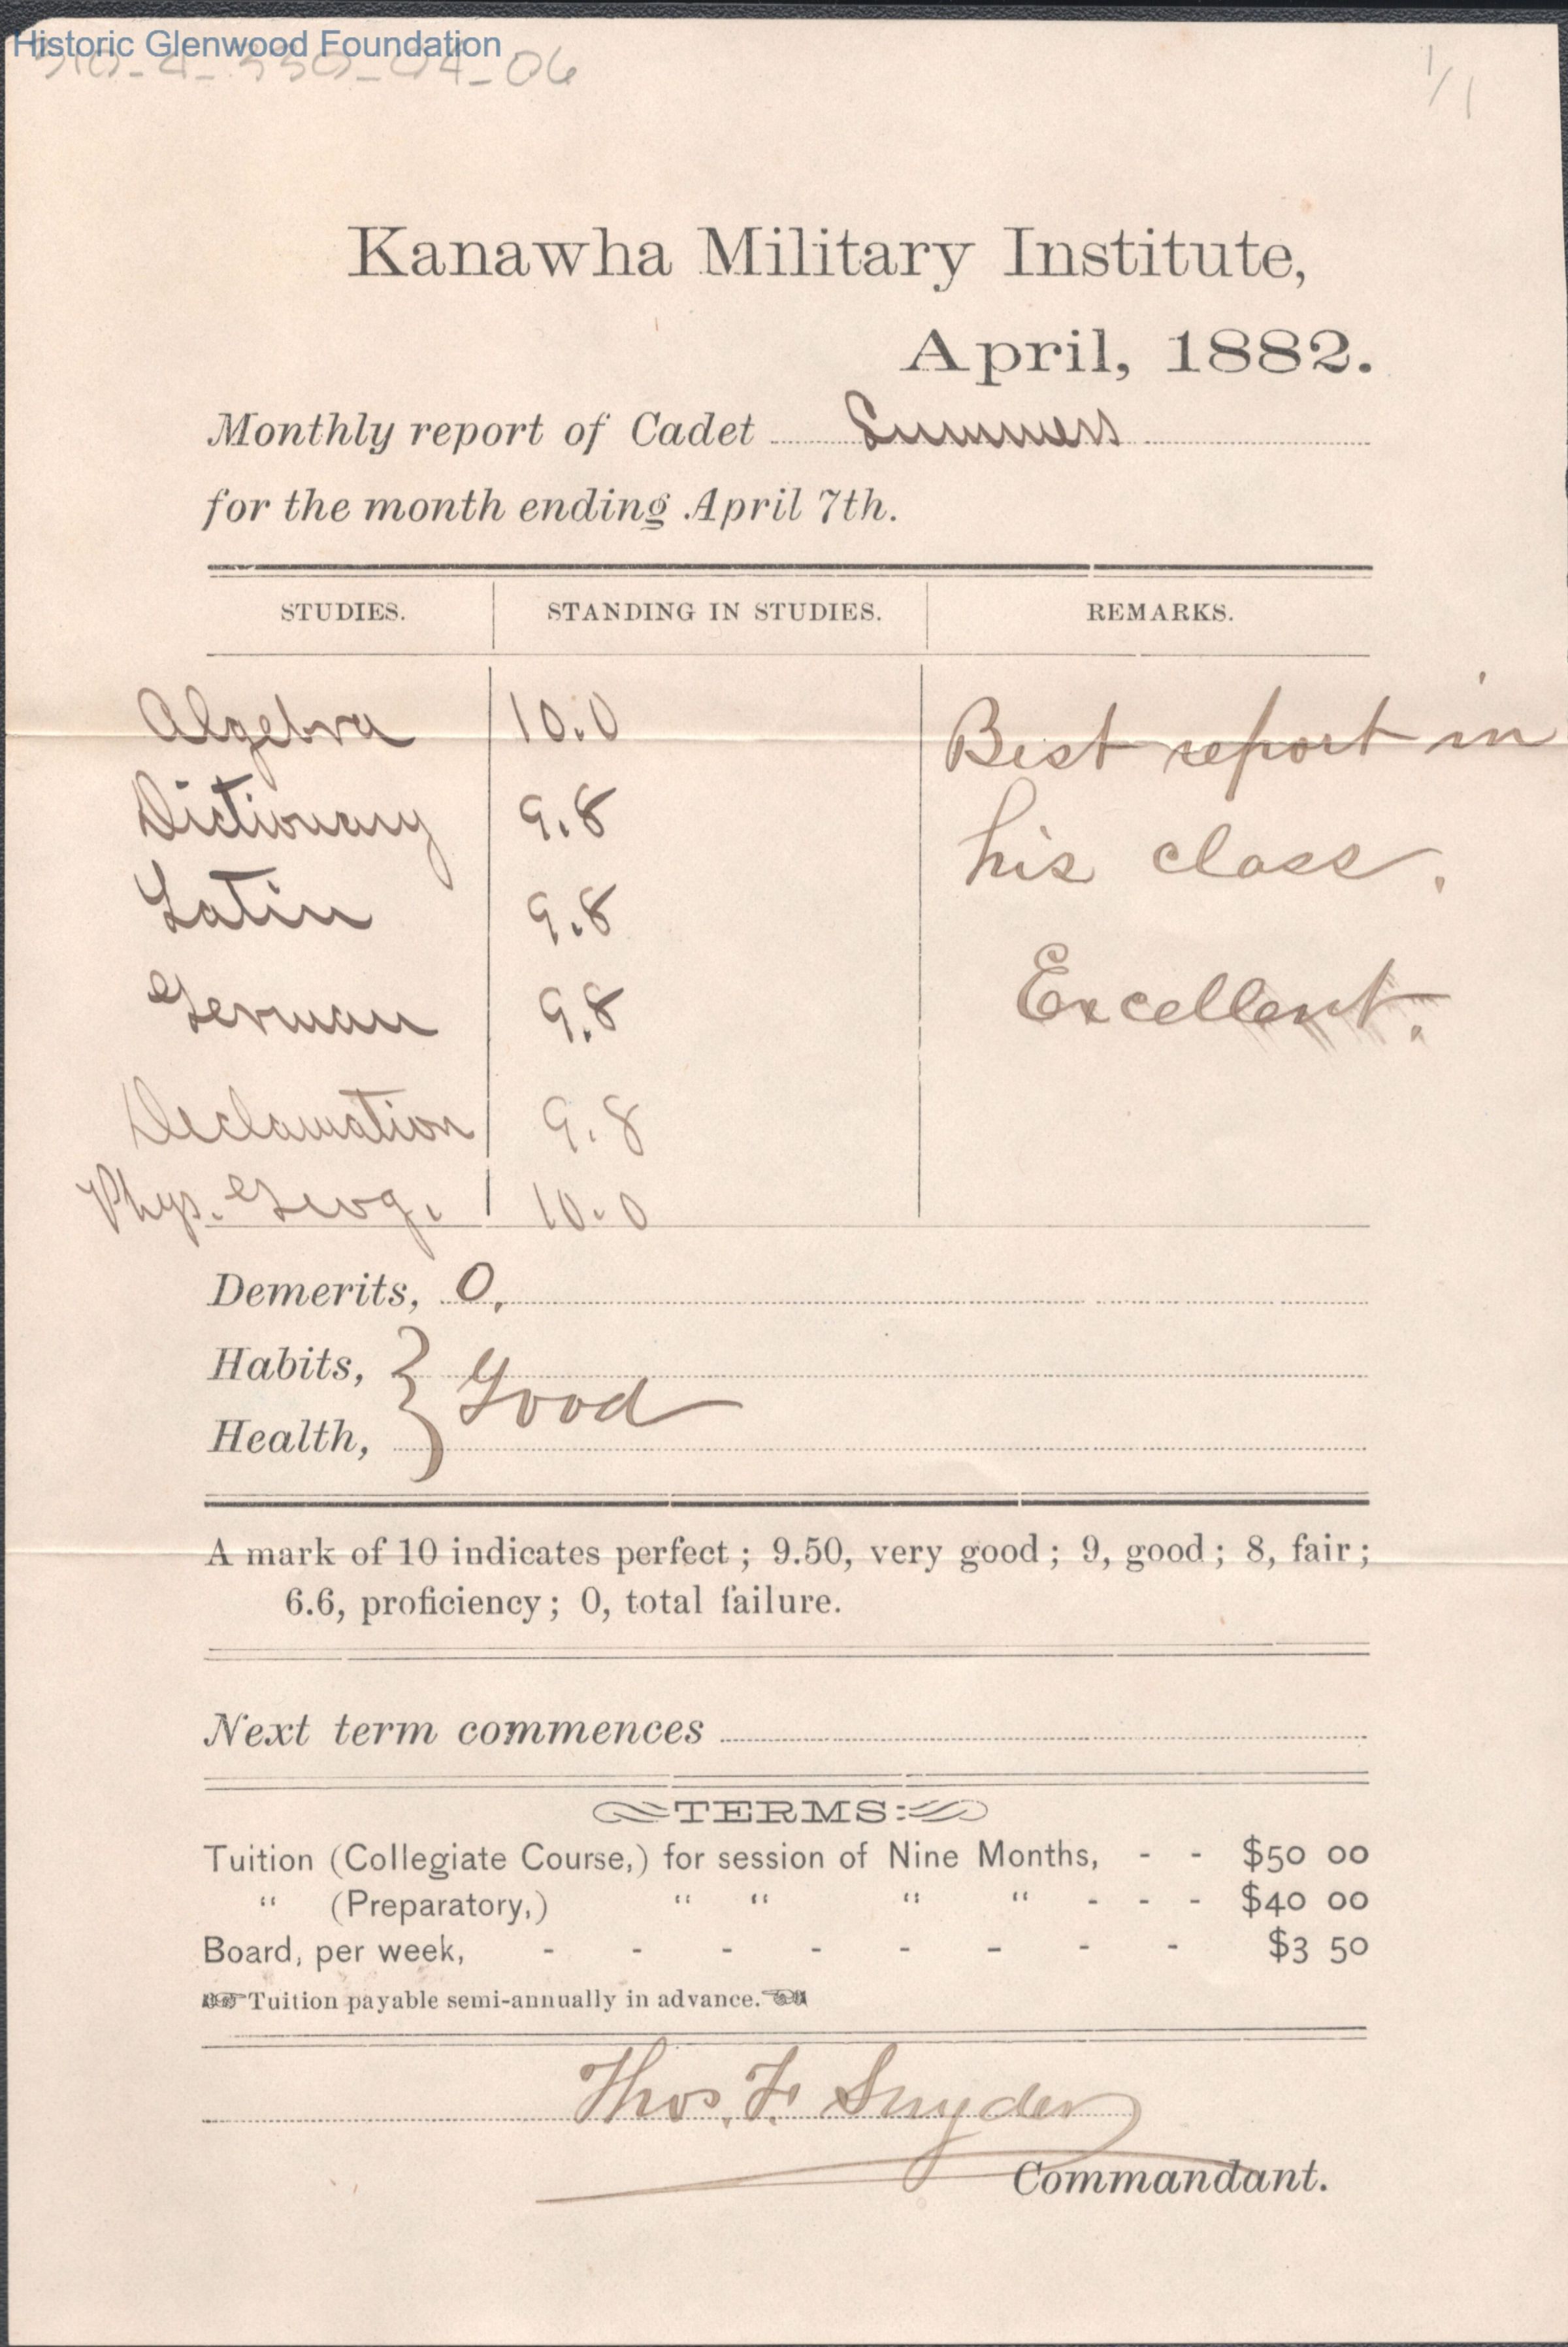 Historic Glenwood Foundation
-04-06
1/1
Kanawha Military Institute,
April, 1882.
Monthly report of Cadet Summers
for the month ending April 7th.
STUDIES. STANDING IN STUDIES. REMARKS.
Algebra 10.0 Best report in
Dictionary 9.8 his class.
Latin 9.8
German 9.8 Excellent.
Declamation 9.8
Phys. Geog. 10.0
Demerits, 0.
Habits, } Good
Health,
A mark of 10 indicates perfect; 9.50, very good; 9, good; 8, fair;
6.6, proficiency; 0, total failure.
Next term commences
TERMS:
Tuition (Collegiate Course,) for session of Nine Months, - - $50 00
" (Preparatory,) " " " " - - - $40 00
Board, per week, - - - - - - - - $3 50
☞Tuition payable semi-annually in advance.☜
Thos. F. Snyder
Commandant.